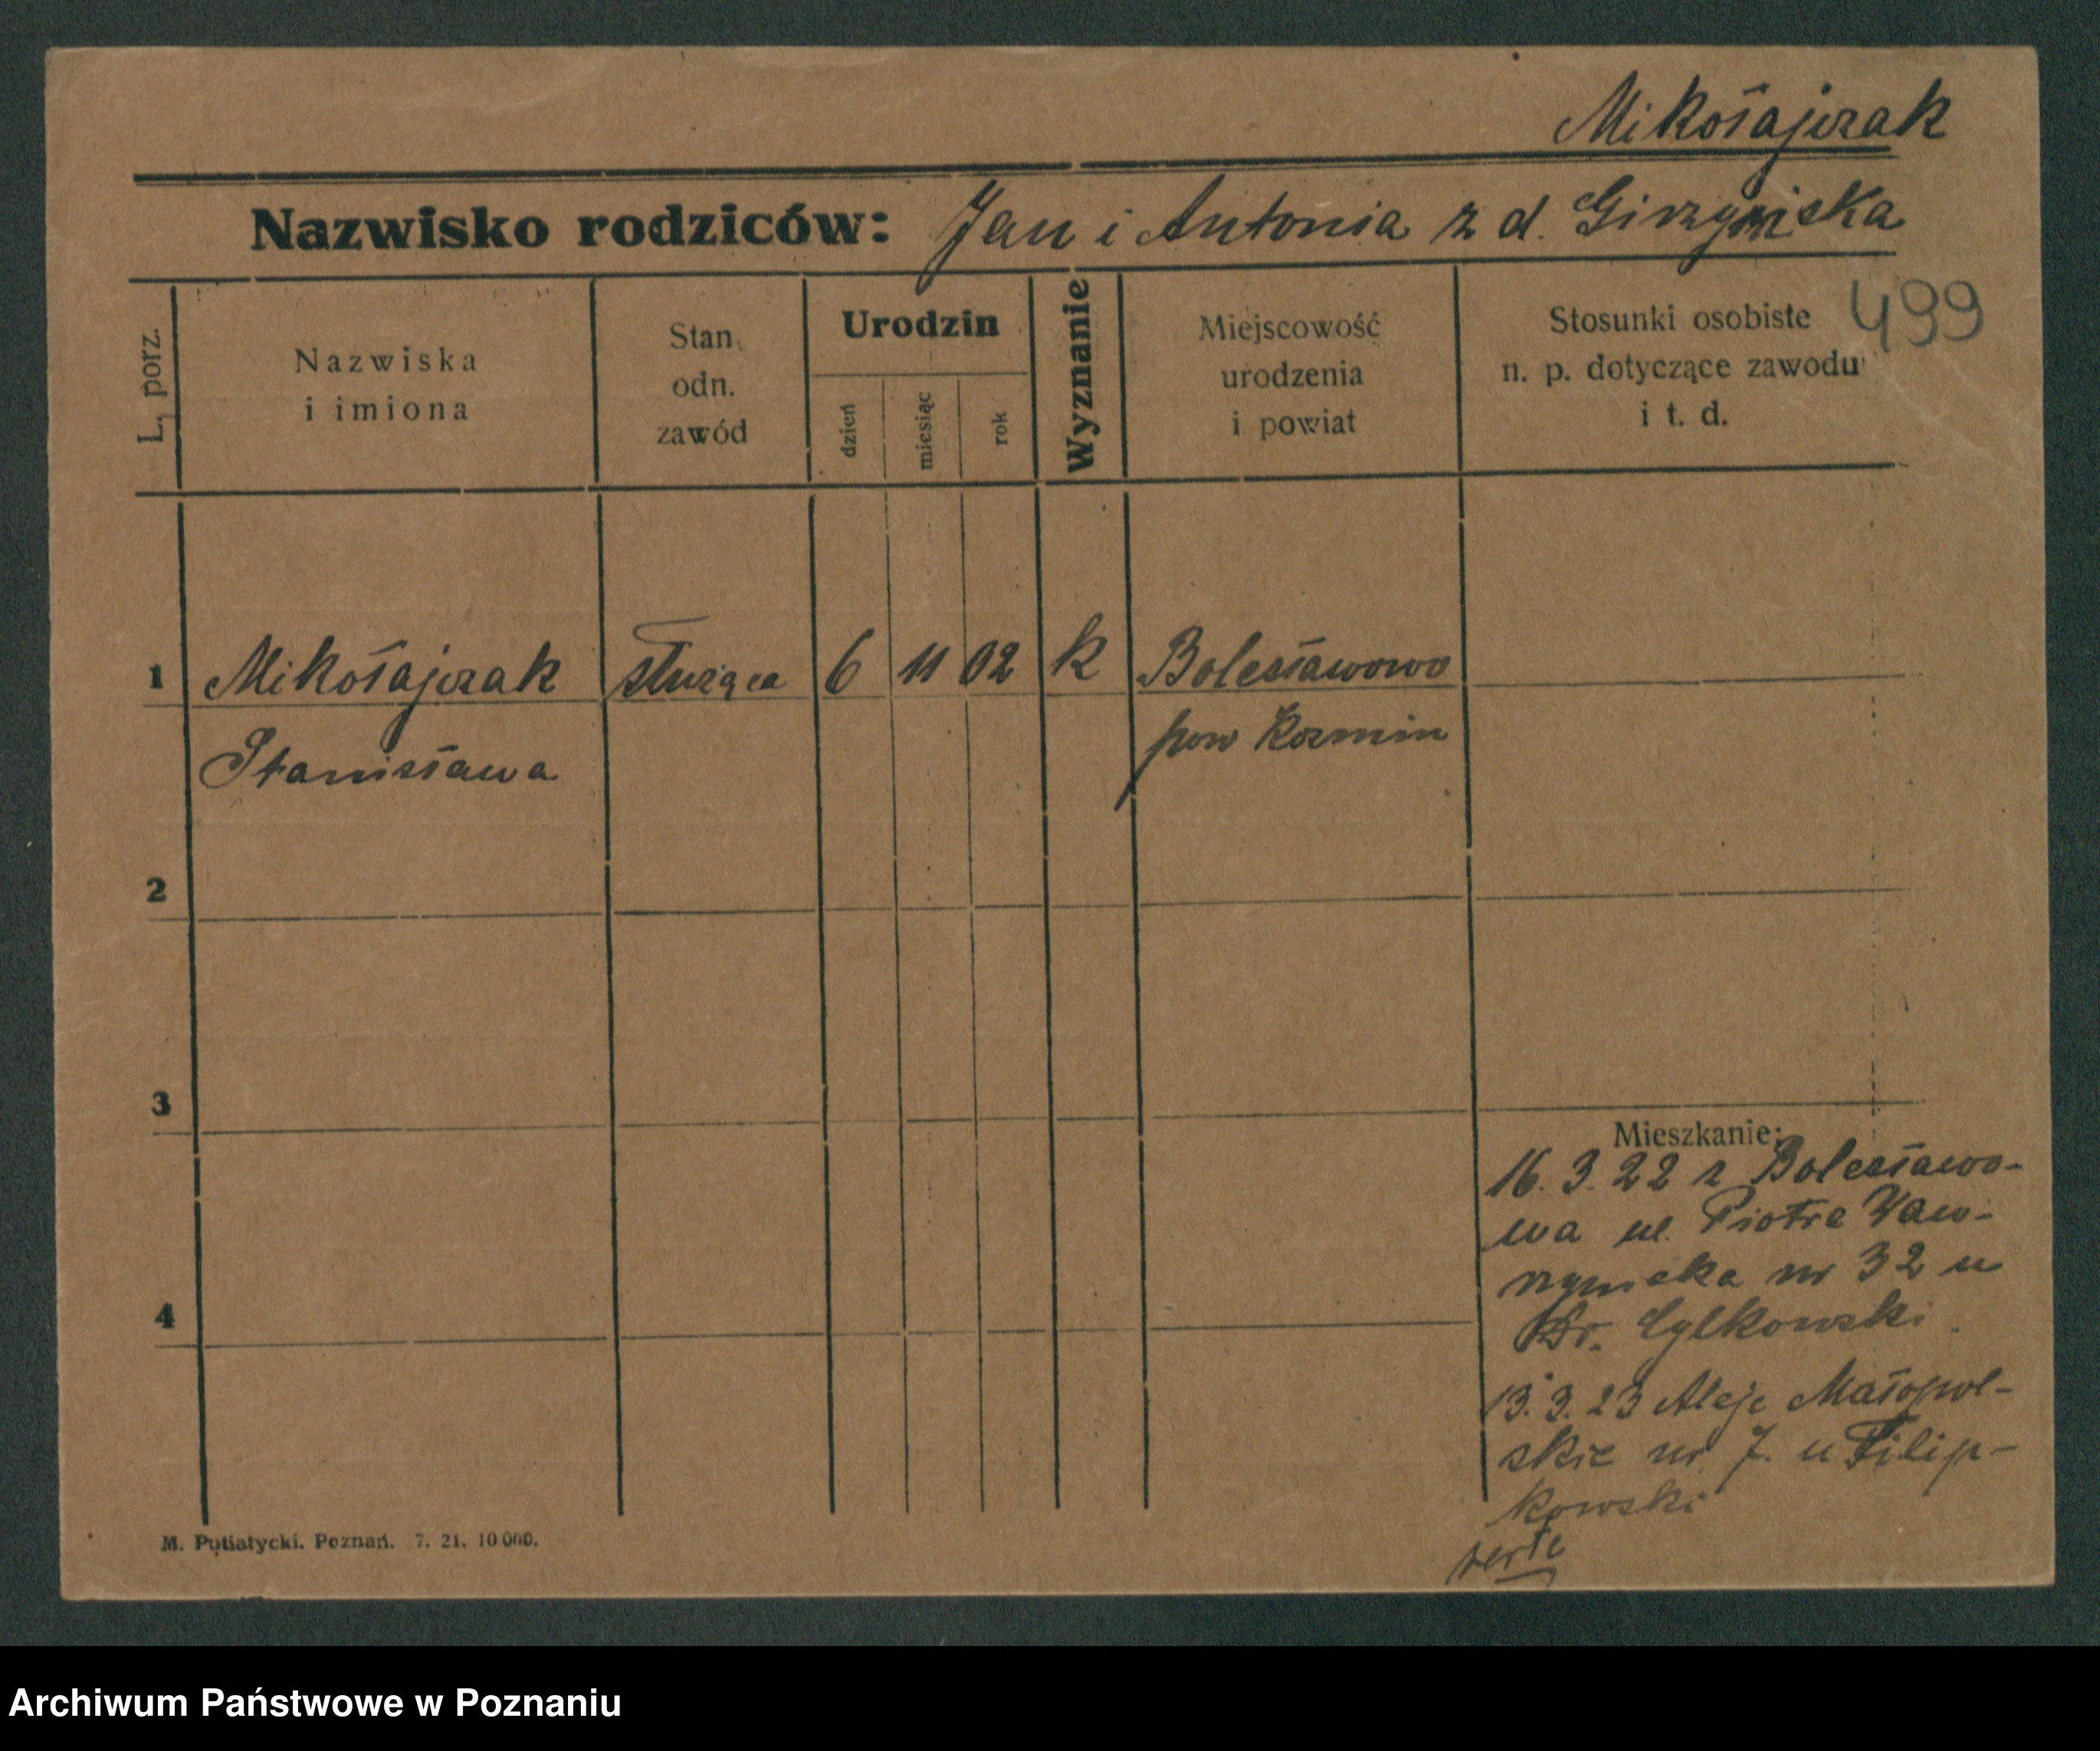 Mikołajczak
Nazwisko rodziców: Jan i Antonia z d.
499
L. porz.
Nazwiska
i imiona
Stan
odn.
zawód
Urodzin
dzień
miesiąc
rok
Wyznanie
Miejscowość
urodzenia
i powiat
Stosunki osobiste
n. p. dotyczące zawodu
i t. d.
1 Mikołajczak służąca 6 11 02 k Bolesławowo
Stanisława pow Kozmin
2
3
4
Mieszkanie:
16. 3. 22 z Bolesławo-
wa ul. Piotra Waw-
rzyniaka nr 32 u
Dr. Cylkowski
13. 3. 23 Aleje Małopol-
skie nr 7. u Filip-
kowski
verte
M. Putiatycki. Poznań. 7. 21. 10 000.
Archiwum Państwowe w Poznaniu